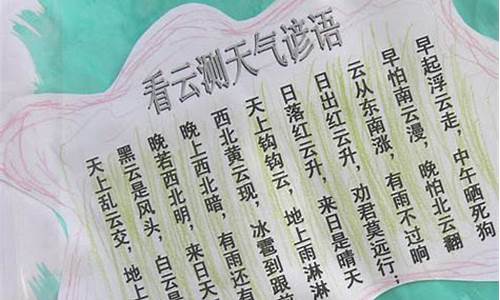 看云测天气谚语
早起浮云走，中午晒死狗
早怕南云漫，晚怕北云翻
云从东南涨，有雨不过晌
日出红云升，劝君莫远行；
日落红云升，来日是晴天
天上钩钩云，地上雨淋淋
西北黄云现，冰雹到跟前
晚上西北暗，有雨还有
晚若西北明，来日天
黑云是风头，白云是
天上乱云交，地上